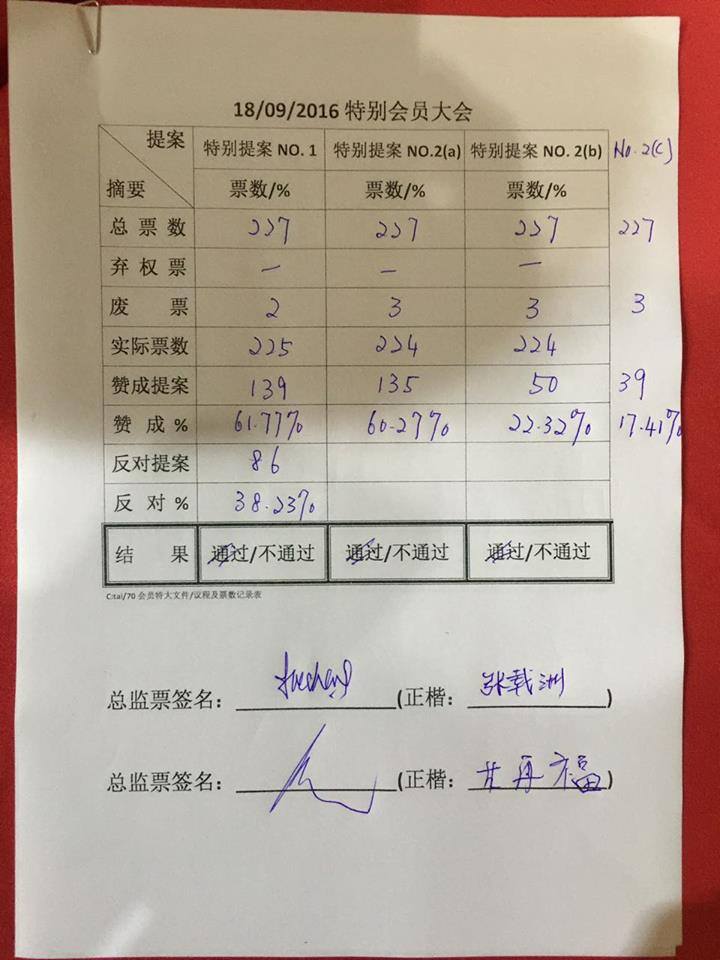 18/09/2016 特别会员大会
提案 特别提案 NO. 1 特别提案 NO.2(a) 特别提案 NO. 2(b) No. 2(c)
摘要 票数/% 票数/% 票数/%
总 票 数 227 227 227 227
弃 权 票 — — —
废 票 2 3 3 3
实际票数 225 224 224
赞成提案 139 135 50 39
赞 成 % 61.77% 60.27% 22.32% 17.41%
反对提案 86
反 对 % 38.23%
结 果 通过/不通过 通过/不通过 通过/不通过
C:tai/70 会员特大文件/议程及票数记录表
总监票签名: (正楷: 张载洲)
总监票签名: (正楷: 甘再福)